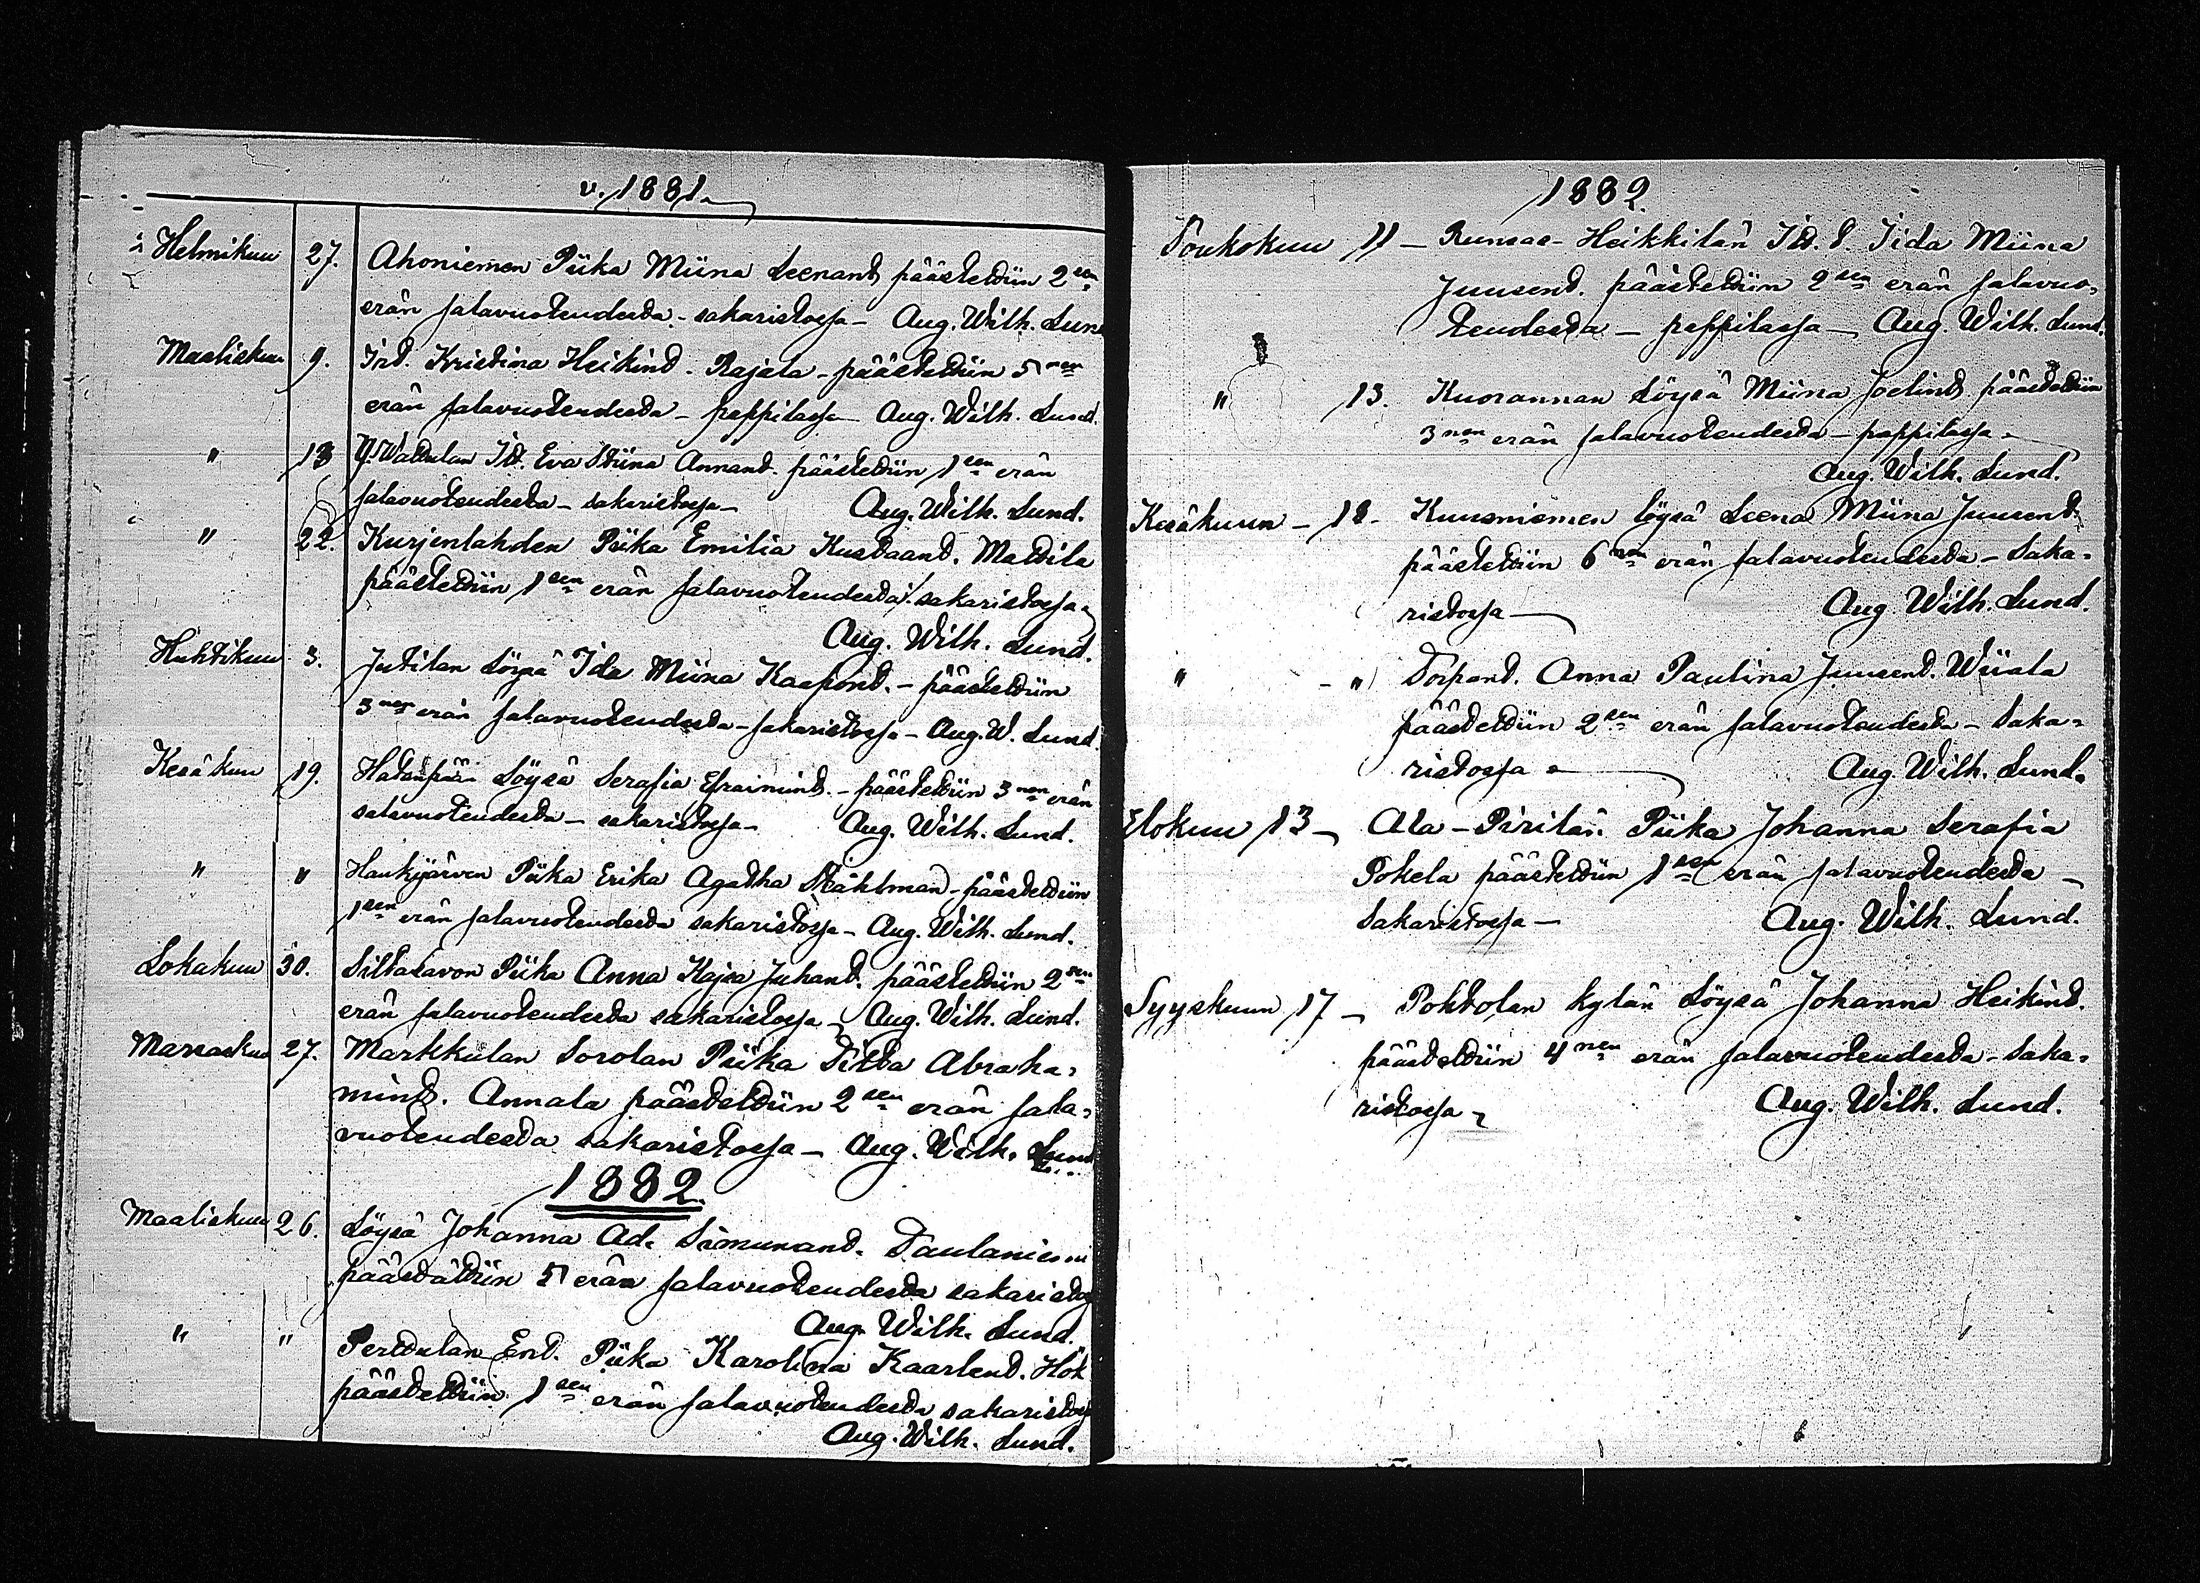 v. 1881.
Helmikuu 27. Ahoniemen Piika Miina Leenant. päästettiin 2sen
erän salavuoteudesta - sakaristossa - Aug. Wilh. Lund
Maaliskuu 9. Irt. Kristina Heikint. Rajala - päästettiin 5nen
erän salavuoteudesta - pappilassa - Aug. Wilh. Lund.
" 13 Y. Wattulan Itt. Eva Stiina Annant. päästettiin 1sen erän
salavuoteudesta - sakaristossa - Aug. Wilh. Lund.
" 22. Kurjenlahden Piika Emilia Kustaant. Mattila
päästettiin 1sen erän salavuoteudesta /. sakaristossa -
Aug. Wilh. Lund.
Huhtikuu 3. Jutilan Löysä Ida Miina Kaapont. - päästettiin
3nen erän salavuoteudesta - sakaristossa - Aug. W. Lund
Kesäkuu 19. Hatanpään Löysä Serafia Efraimint. - päästettiin 3nen erän
salavuoteudesta - sakaristossa - Aug. Wilh. Lund.
" " Haukijärven Piika Erika Agatha Ståhlman - päästettiin
1sen erän salavuoteudesta sakaristossa - Aug. Wilh. Lund.
Lokakuu 30. Siltasavon Piika Anna Kajsa Juhant. päästettiin 2sen
erän salavuoteudesta sakaristossa - Aug. Wilh. Lund.
Marraskuu 27. Markkulan Sorolan Piika Titta Abraha=
mint. Annala päästettiin 2sen erän sala=
vuoteudesta sakaristossa - Aug. Wilh. Lund
1882
Maaliskuu 26. Löysä Johanna Ad. Simunant. Taulaniemi
päästättiin 5 erän salavuoteudesta sakaristos
Aug. Wilh. Lund.
" " Perttulan Ent. Piika Karolina Kaarlent. Hök
päästettiin 1sen erän salavuoteudesta sakaristos
Aug. Wilh. Lund.
1882.
Toukokuu 11 - Runsas-Heikkilän Itt. t. Iida Miina
Juusent. päästettiin 2sen erän salavuo=
teudesta - pappilassa - Aug. Wilh. Lund.
" 13. Kuorannan Löysä Miina Joelint. päästettiin
3nen erän salavuoteudesta - pappilassa -
Aug. Wilh. Lund.
Kesäkuun - 18 - Kuusniemen löysä Leena Miina Juusent.
päästettiin 6nen erän salavuoteudesta - Saka=
ristossa - Aug. Wilh. Lund.
" - " Torpant. Anna Paulina Juusent. Wiiala
päästettiin 2sen erän salavuoteudesta - Saka=
ristossa - Aug. Wilh. Lund.
Elokuu 13 - Ala-Pirilän Piika Johanna Serafia
Pokela päästettiin 1sen erän salavuoteudesta -
Sakaristossa - Aug. Wilh. Lund.
Syyskuun 17 - Pohtolan kylän Löysä Johanna Heikint.
päästettiin 4nen erän salavuoteudesta - Saka=
ristossa - Aug. Wilh. Lund.